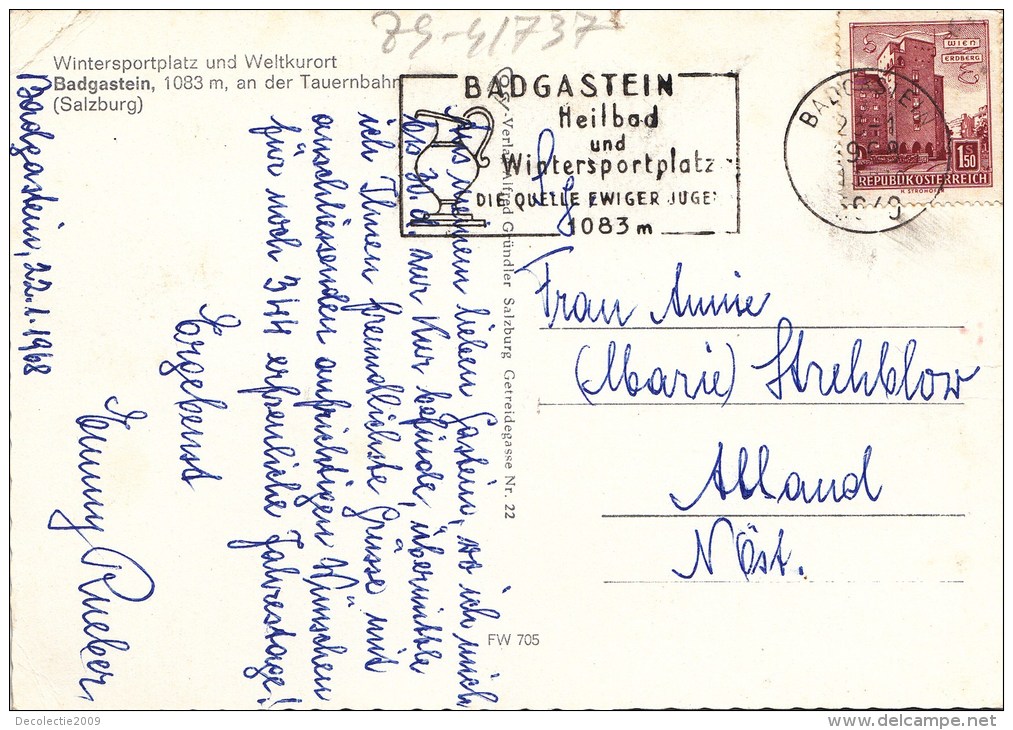 79-41737
Wintersportplatz und Weltkurort
Badgastein, 1083 m, an der Tauernbahn
(Salzburg)
BADGASTEIN
Heilbad
und
Wintersportplatz
DIE QUELLE EWIGER JUGE
1083 m
BADGASTEIN
1968
5640
WIEN
ERDBERG
1 S 50
REPUBLIK ÖSTERREICH
H. STROHOFER
Badgastein, 22.1.1968
Aus meinem lieben Gastein, wo ich mich
bis 30.d. zur Kur befinde, übermittle
ich Ihnen freundlichste Grüsse mit
anschliessenden aufrichtigen Wünschen
für noch 344 erfreuliche Jahrestage!
Ergebenst
Emmy Rueber
-Verlag Alfred Gründler Salzburg Getreidegasse Nr. 22
Frau Annie
(Marie) Strehblow
Alland
N Öst.
FW 705
Decolectie2009
http://www.delcampe.net